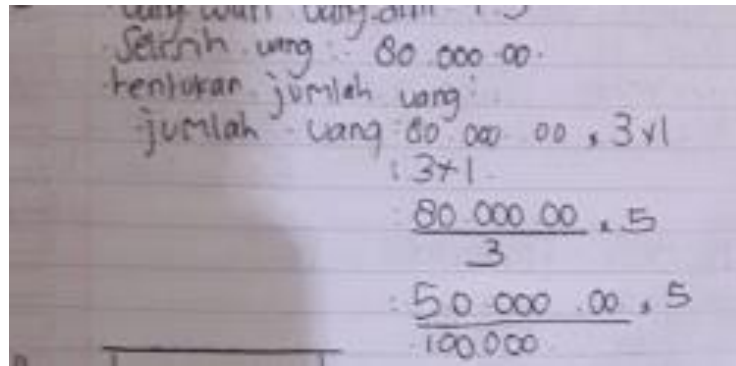 Selisih uang : 80.000.00.
tentukan jumlah uang :
jumlah uang : 80 000 00 x 3+1
: 3+1.
: 80 000 00 x 5
3
: 50.000.00 x 5
100.000